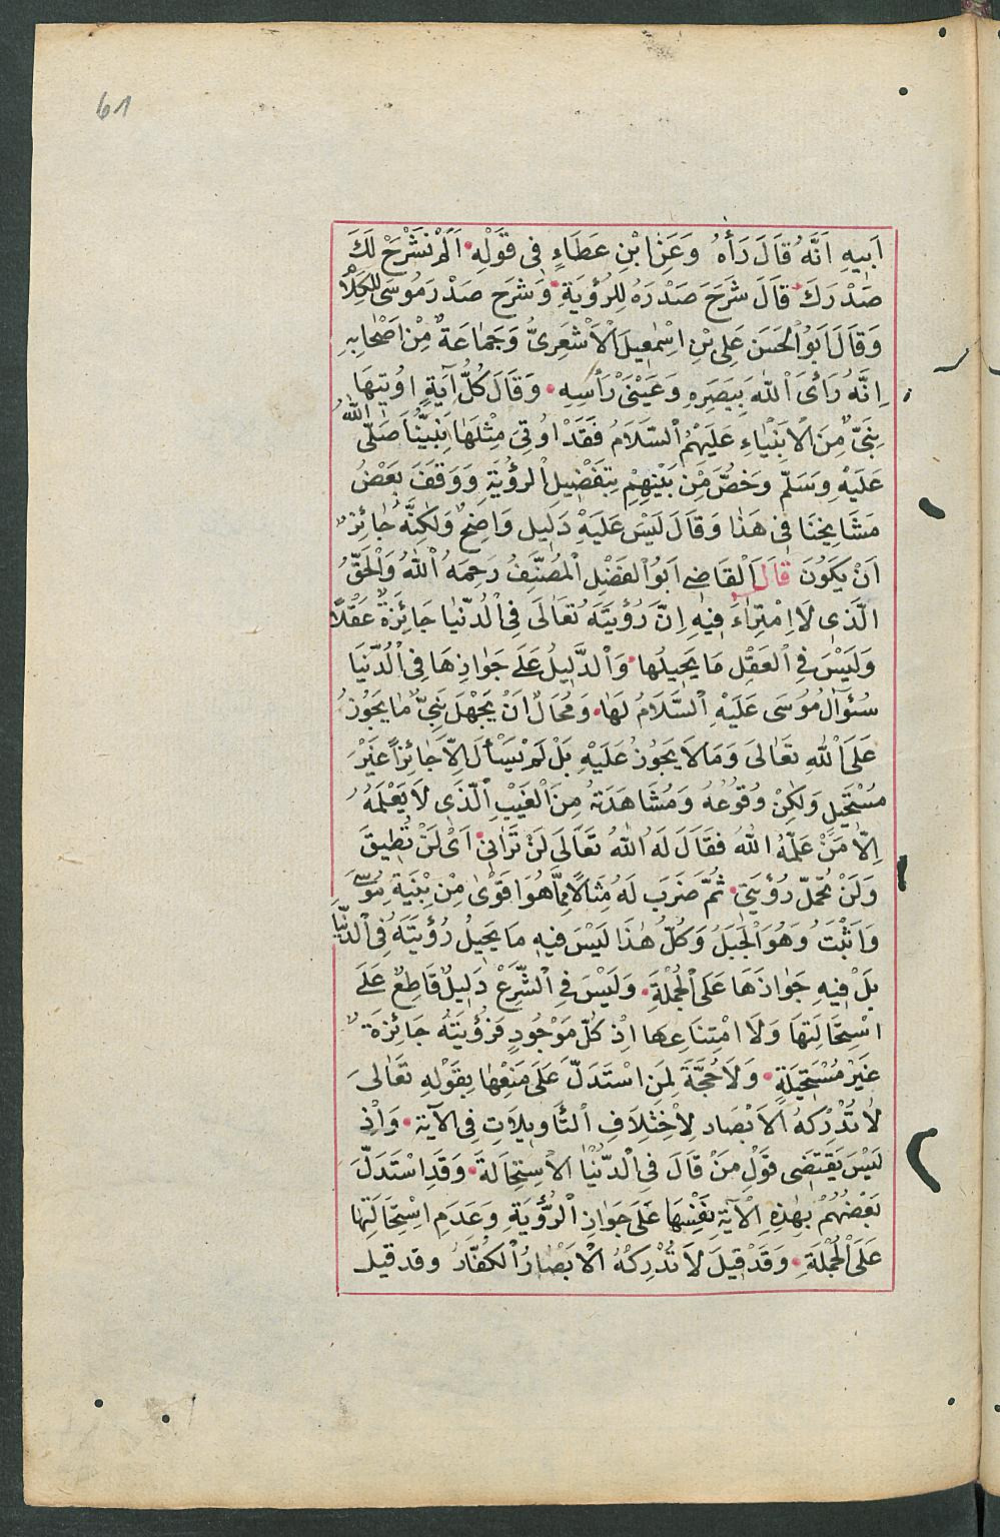 61
اَبِيهِ اَنَّهُ قَالَ رَأَهُ وَعَنِ ابْنِ عَطَاءٍ فِى قَوْلِهِ اَلَمْ نَشْرَحْ لَكَ
صَدْرَكَ قَالَ شَرَحَ صَدْرَهُ لِلرُّؤيَةِ وَشَرَحَ صَدْرَ مُوسَى لِلْكَلَا
وَقَالَ اَبُو الْحَسَنِ عَلِى بْنِ اِسْمٰعِيلَ الْاَشْعَرِىُّ وَجَمَاعَةٌ مِنْ اَصْحَابِهِ
اِنَّهُ رَأَىَ اللّٰهَ بِبَصَرِهِ وَعَيْنَىْ رَأْسِهِ وَقَالَ كُلُّ اٰيَةٍ اُوتِيَهَا
نَبِىٌّ مِنَ الْاَنْبِيَاءِ عَلَيْهِمُ السَّلَامُ فَقَدْ اُوتِىَ مِثْلَهَا نَبِيُّنَا صَلَّى اللّٰهُ
عَلَيْهِ وَسَلَّمَ وَخُصَّ مِنْ بَيْنِهِمْ بِتَفْضِيلِ الرُّؤْيَةِ وَوَقَفَ بَعْضُ
مَشَايِخِنَا فِى هٰذَا وَقَالَ لَيْسَ عَلَيْهِ دَلِيل وَاضِحٌ وَلَكِنَّهُ جَائِزٌ
اَنْ يَكُونَ قَالَ الْقَاضِى اَبُو الْفَضْلِ الْمُصَنِّفُ رَحِمَهُ اللّٰهُ وَالْحَقُّ
الَّذِى لَا اِمْتِرَاءَ فِيهِ اِنَّ رُؤْيَتَهُ تَعَالَى فِى الدُّنْيَا جَائِزَةٌ عَقْلًا
وَلَيْسَ فِى الْعَقْلِ مَا يُحِيلُهَا وَالدَّلِيلُ عَلَى جَوَازِهَا فِى الدُّنْيَا
سُئَوالُ مُوسَى عَلَيْهِ السَّلَامُ لَهَا وَمُحَالٌ اَنْ يَجْهَلَ نَبِىٌّ مَا يَجُوزُ
عَلَى اللّٰهِ تَعَالَى وَمَا لَا يَجُوزُ عَلَيْهِ بَلْ لَمْ يَسْأَلْ اِلَّا جَائِزاً غَيْرَ
مُسْتَحِيلٍ وَلٰكِنْ وُقُوعُهُ وَمُشَاهَدَتُهُ مِنَ الْغَيْبِ الَّذِى لَا يَعْلَمُهُ
اِلَّا مَنْ عَلَّمَهُ اللّٰهُ فَقَالَ لَهُ اللّٰهُ تَعَالَى لَنْ تَرَانِى اَىْ لَنْ تُطِيقَ
وَلَنْ تَحْمِلَ رُؤْيَتِى ثُمَّ ضَرَبَ لَهُ مِثَالًا مِمَّا هُوَ اَقْوٰى مِنْ بِنْيَةِ مُوسَى
وَاَثْبَتُ وَهُوَ الْجَبَلُ وَكُلُّ هٰذَا لَيْسَ فِيهِ مَا يُحِيلُ رُؤْيَتَهُ فِى الدُّنْيَا
بَلْ فِيهِ جَوَازَهَا عَلَى الْجُمْلَةِ وَلَيْسَ فِى الشَّرْعِ دَلِيلٌ قَاطِعٌ عَلَى
اسْتِحَالَتِهَا وَلَا امْتِنَاعِهَا اِذْ كُلُّ مَوْجُودٍ فَرُؤْيَتُهُ جَائِزَةٌ
غَيْرُ مُسْتَحِيلَةٍ وَلَا حُجَّةَ لِمَنِ اسْتَدَلَّ عَلَى مَنْعِهَا بِقَوْلِهِ تَعَالَى
لَا تُدْرِكُهُ الْاَبْصَار لِاخْتِلَافِ التَّأوِيلَاتِ فِى الْاٰيَةِ وَاِذْ
لَيْسَ يَقْتَضِى قَوْلِ مَنْ قَالَ فِى الدُّنْيَا الْاِسْتِحَالَةَ وَقَدِ اسْتَدَلَّ
بَعْضُهُمْ بِهٰذِهِ الْاٰيَةِ نَفْسِهَا عَلَى جَوَازِ الرُّؤْيَةِ وَعَدَمِ اسْتِحَالَتِهَا
عَلَى الْجُمْلَةِ وَقَدْ قِيلَ لَا تُدْرِكُهُ الْاَبْصَارُ الْكُفَّارُ وقد قيل